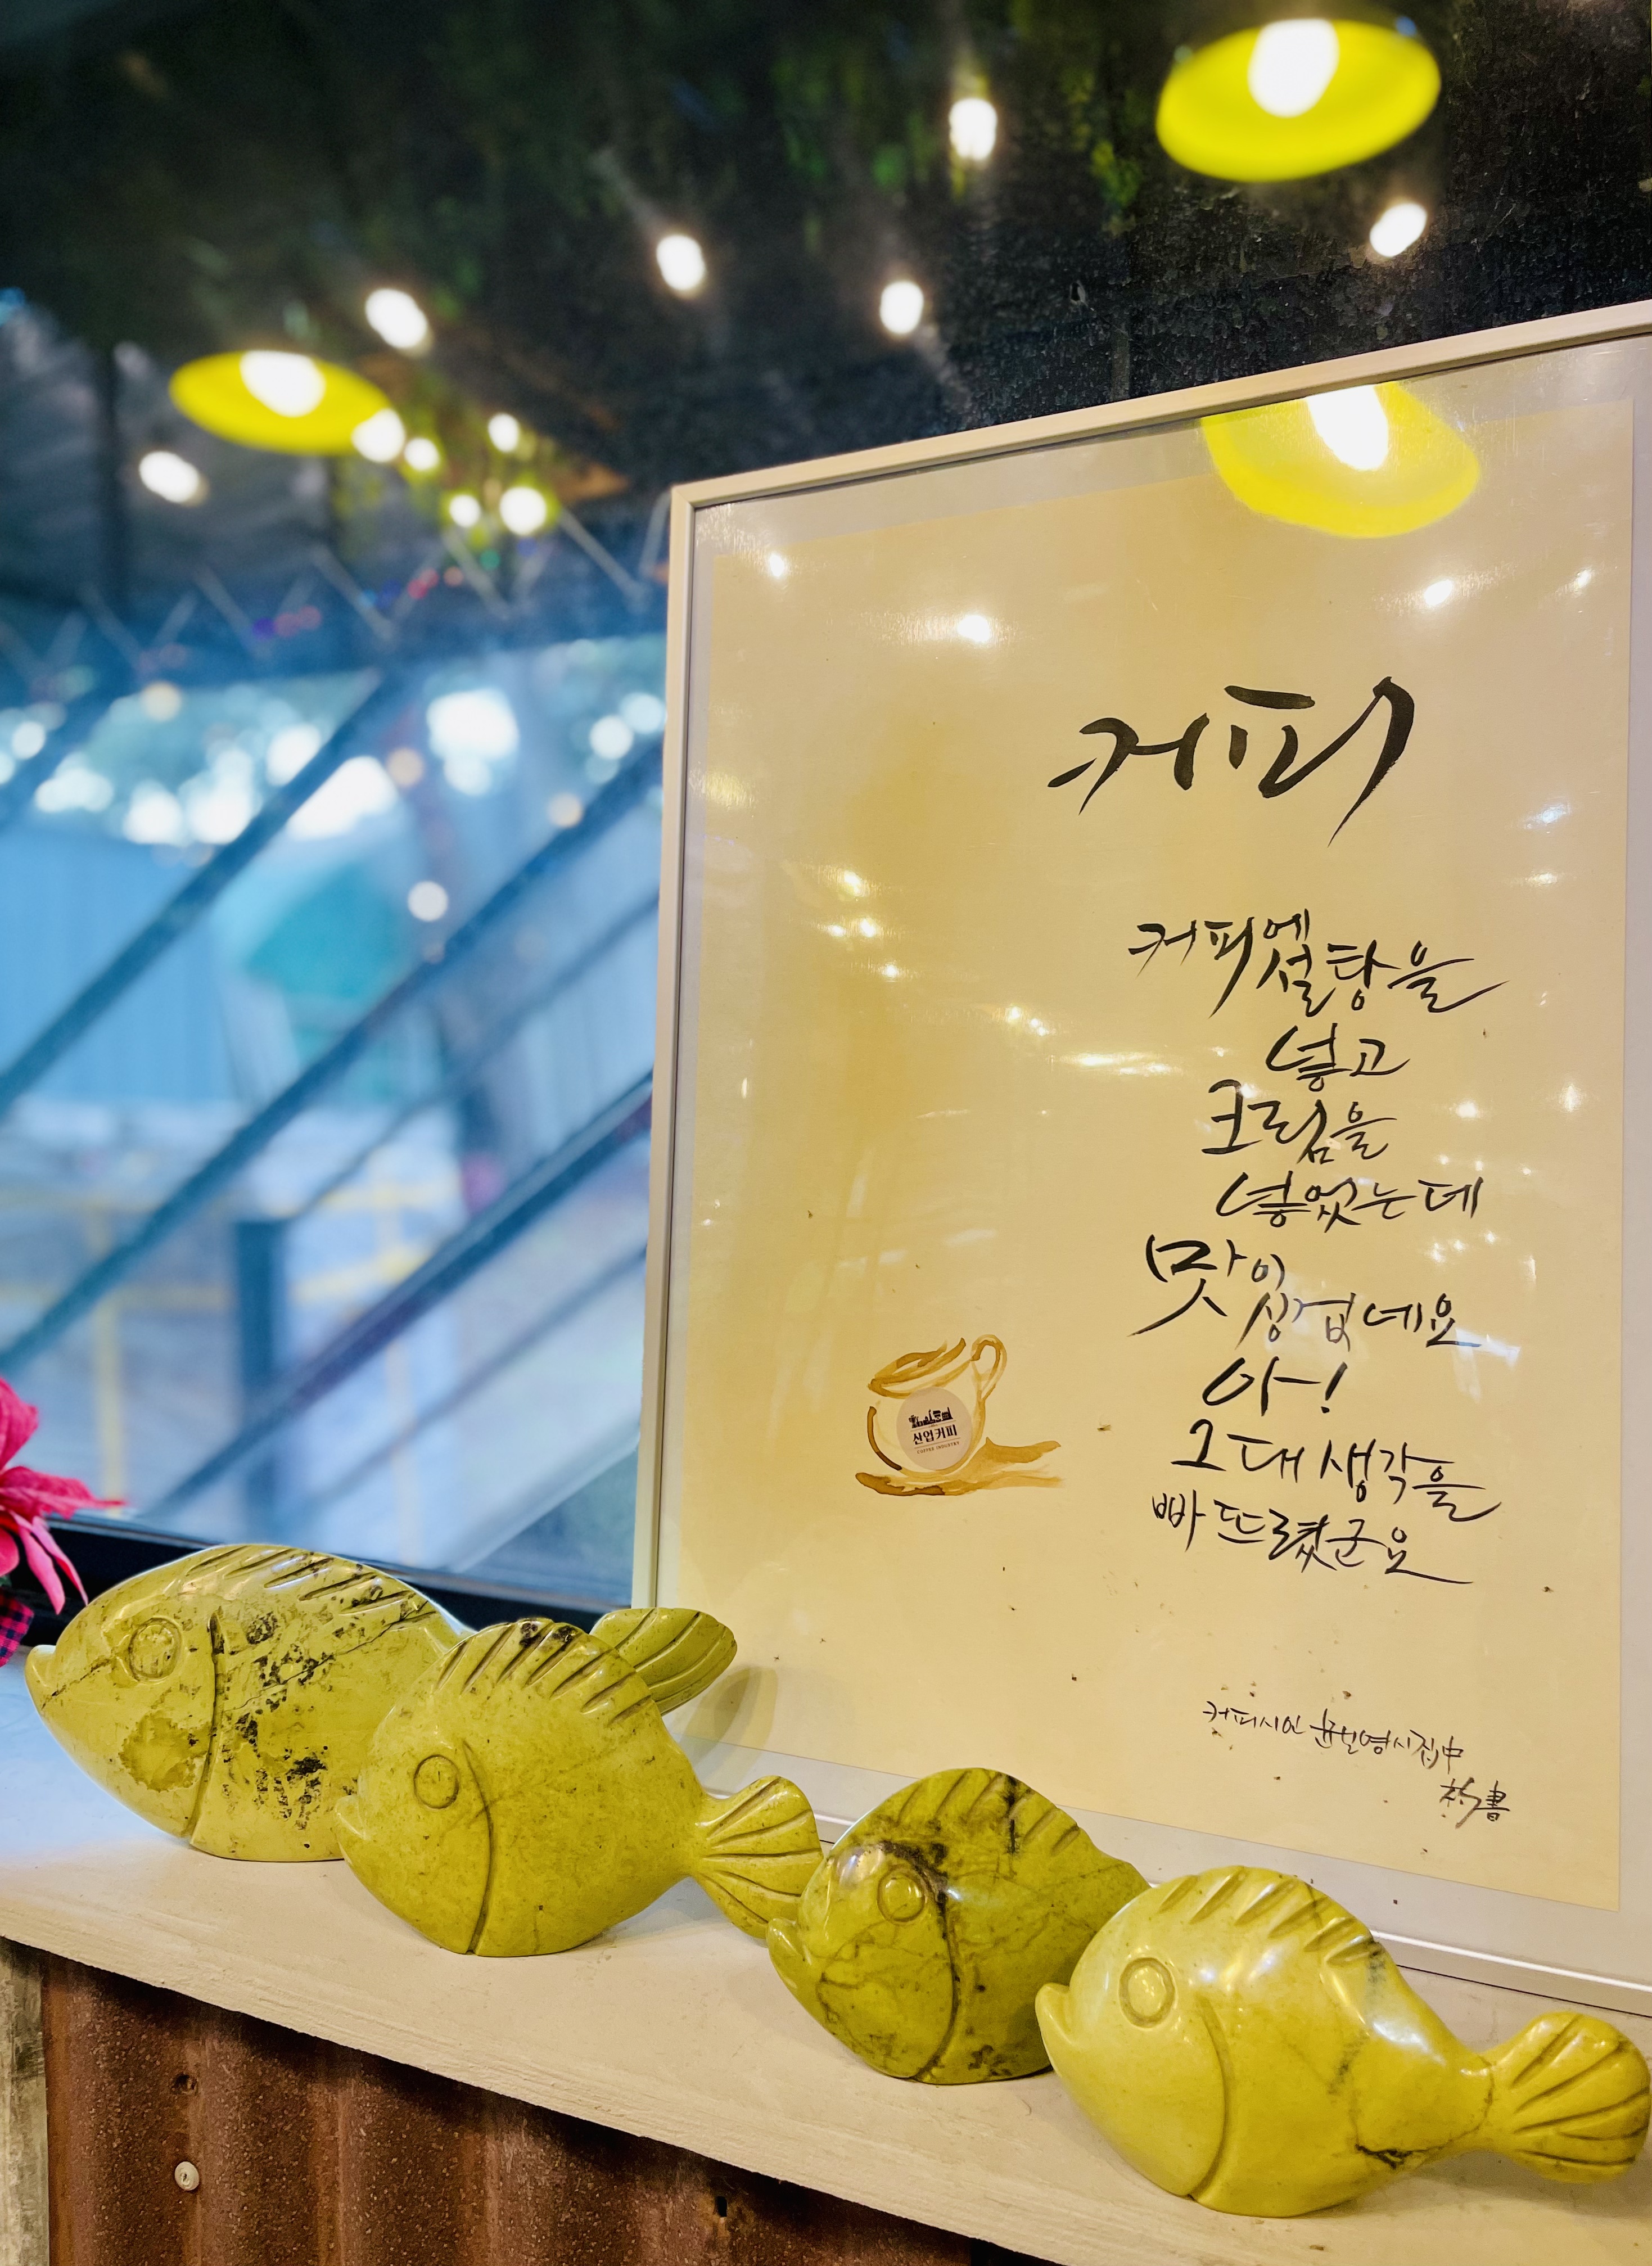 커피
커피에
설탕을
넣고
크림을
넣었는데
맛이
싱겁네요
아!
그대 생각을
빠뜨렸군요
산업커피
COFFEE INDUSTRY
커피시인 윤보영시집中
書